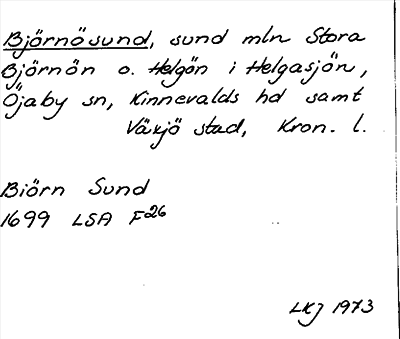 Björnösund, sund mln Stora
Björnön o. Helgön i Helgasjön,
Öjaby sn, Kinnevalds hd samt
Växjö stad, Kron. l.
Biörn Sund
1699 LSA F26
LKJ 1973